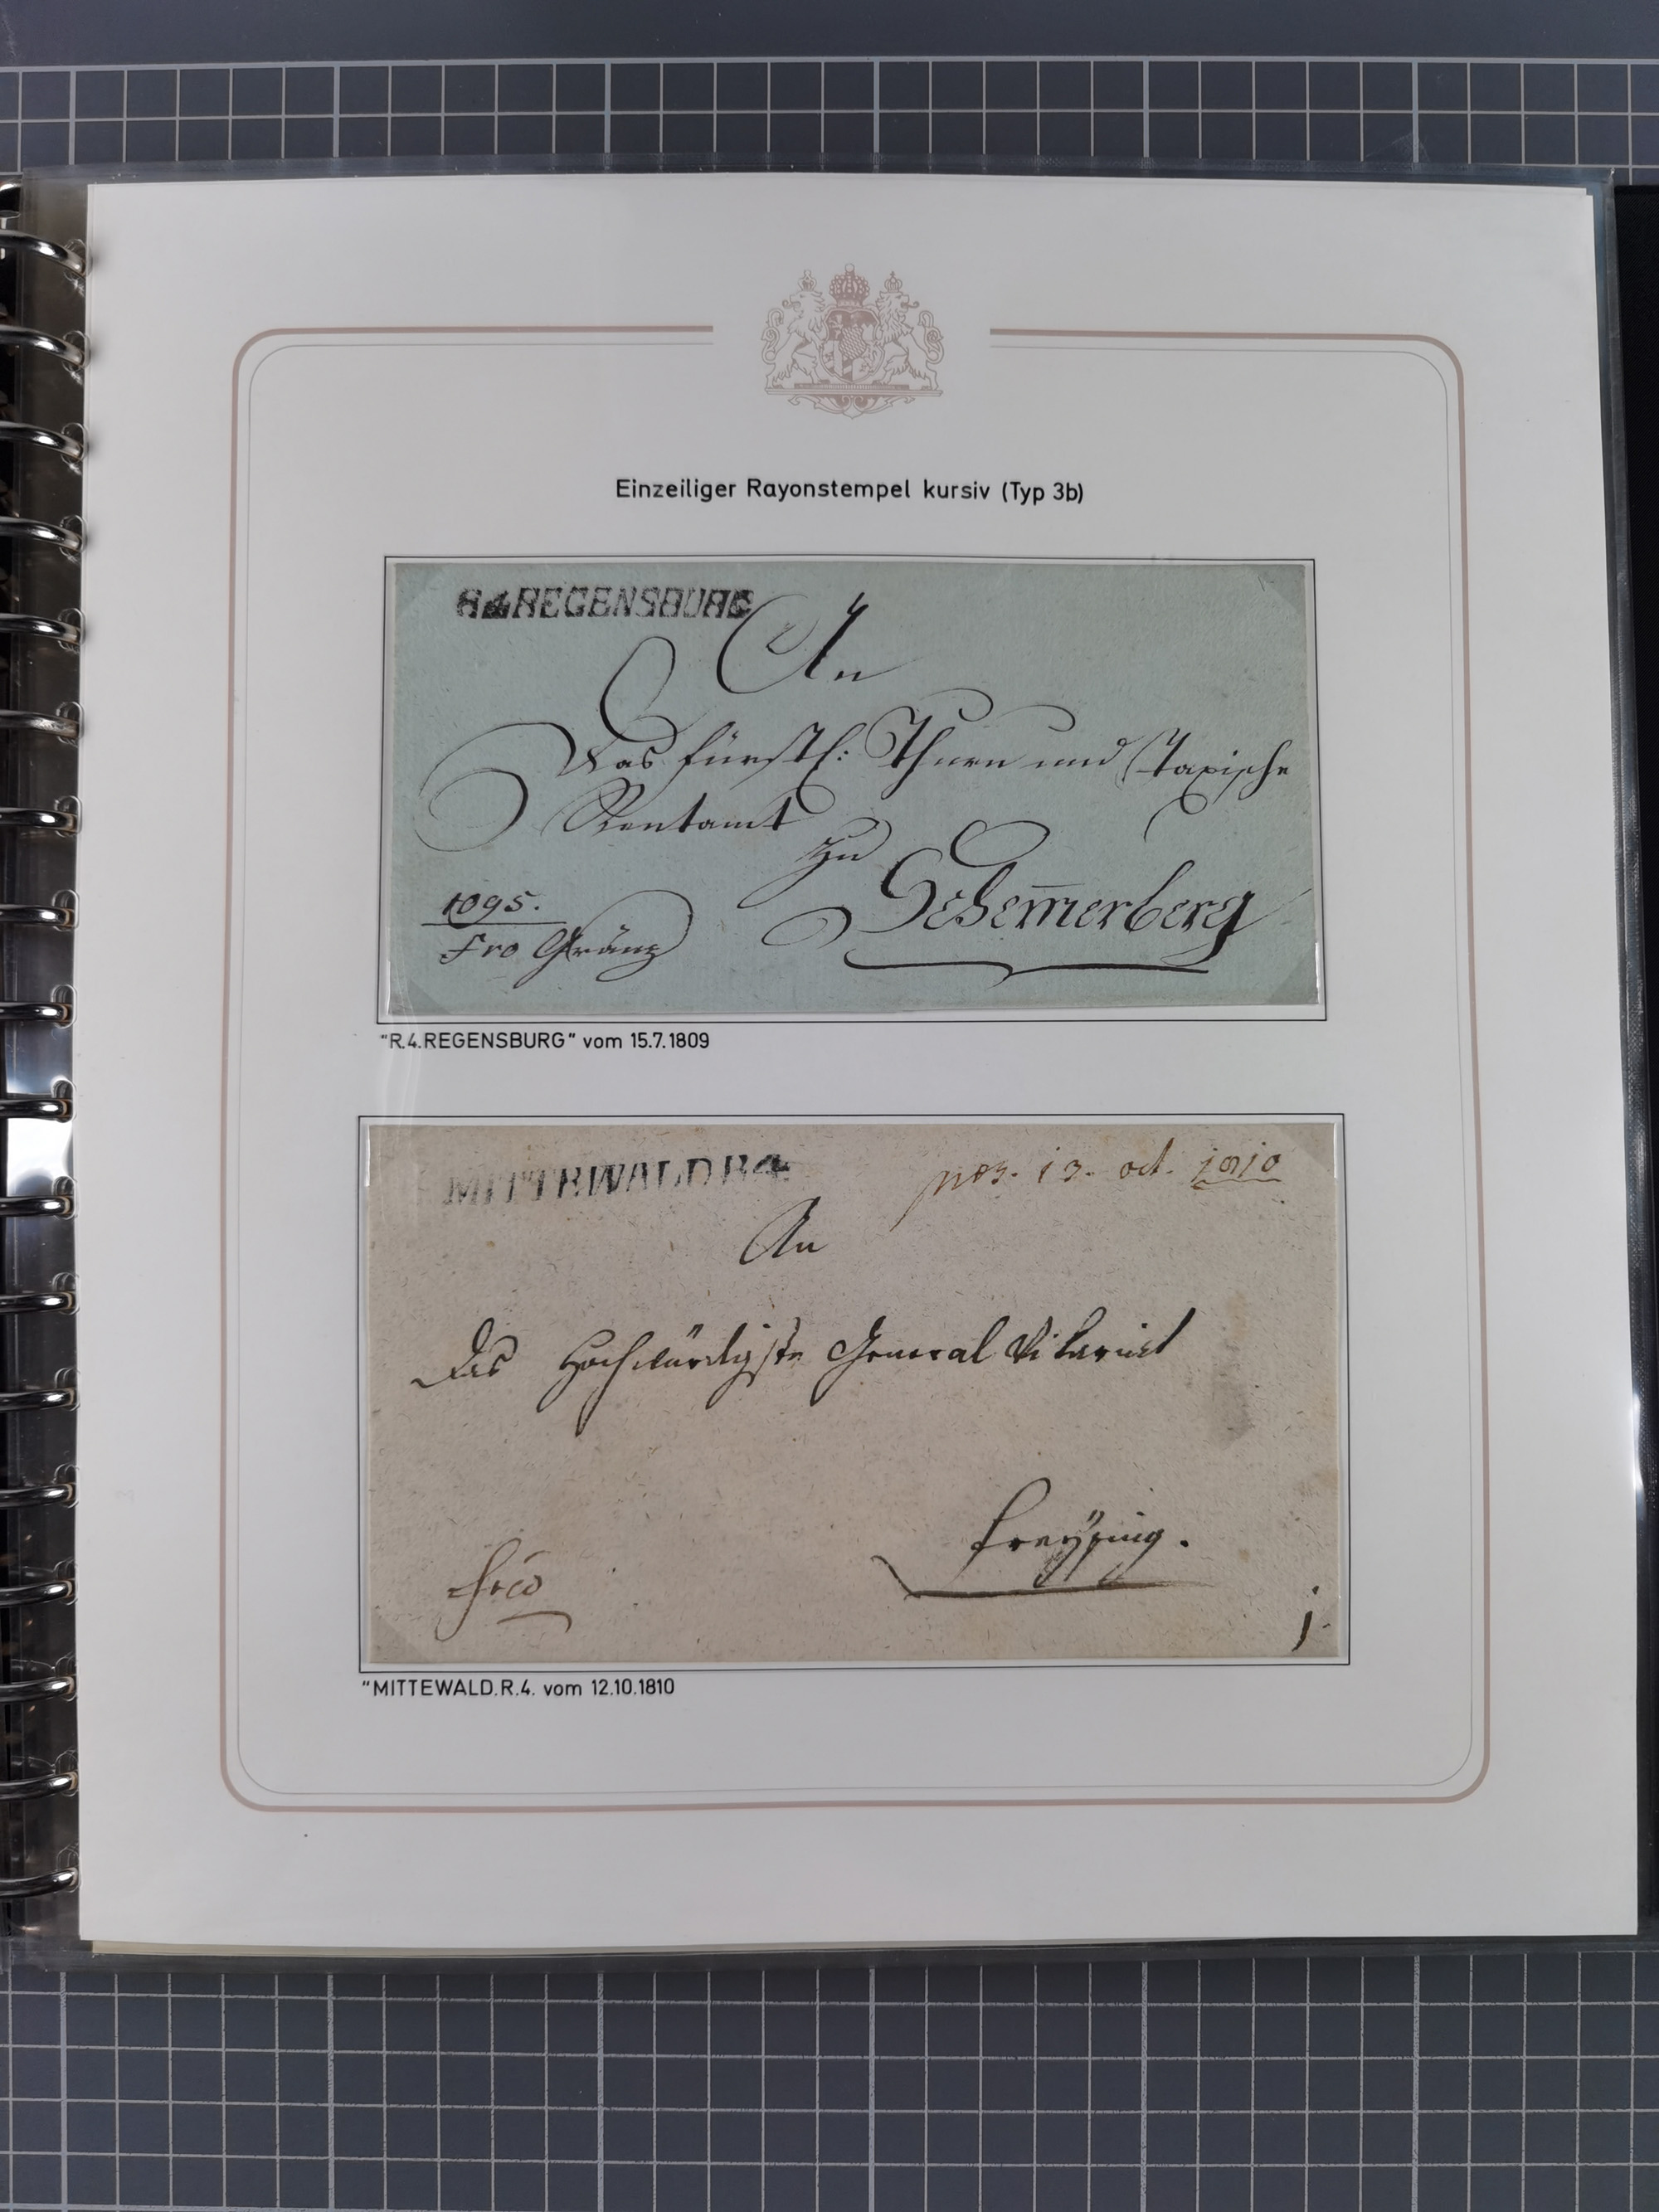 Einzeiliger Rayonstempel kursiv (Typ 3b)
R.4.REGENSBURG
An
Das fürstl: Thurn und Taxische
Rentamt
zu
1095.
fro Gränz
"R.4.REGENSBURG" vom 15.7.1809
MITTEWALD.R.4.
13. oct. 1810
An
Das Hochwürdigste General Vikariat
Freysing.
frco
"MITTEWALD.R.4. vom 12.10.1810